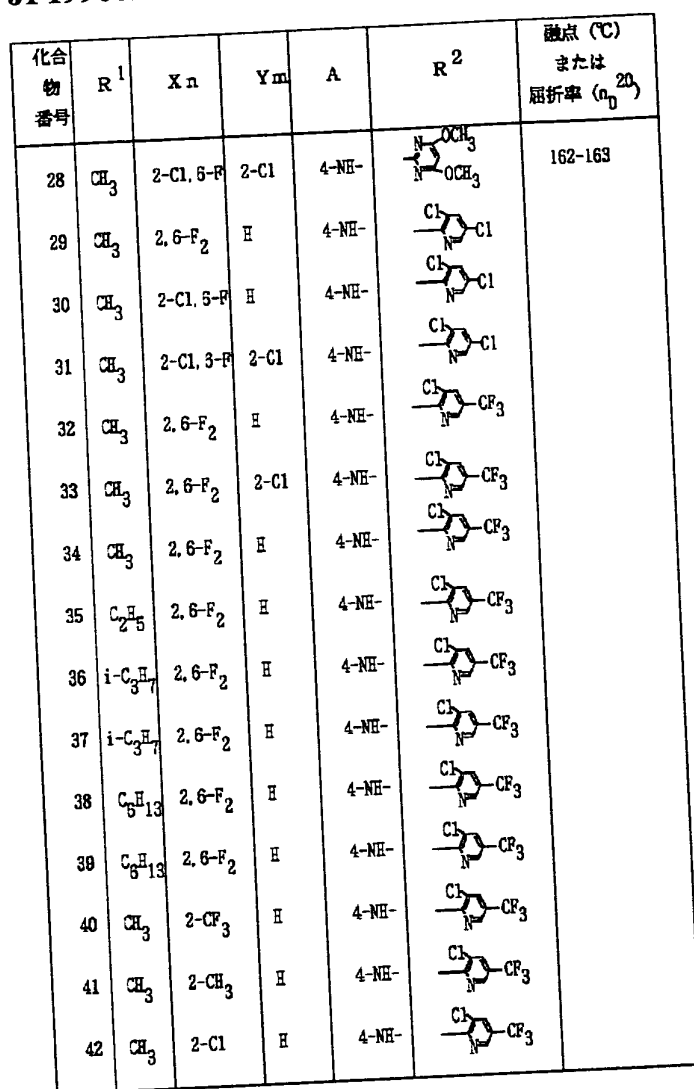 化合物番号 R¹ Xn Ym A R² 融点 (℃) または 屈折率 (n_D²⁰)
28 CH₃ 2-Cl, 6-F 2-Cl 4-NH- N N OCH₃ OCH₃ 162-163
29 CH₃ 2,6-F₂ H 4-NH- Cl N Cl
30 CH₃ 2-Cl, 6-F H 4-NH- Cl N Cl
31 CH₃ 2-Cl, 6-F 2-Cl 4-NH- Cl N Cl
32 CH₃ 2,6-F₂ H 4-NH- Cl N CF₃
33 CH₃ 2,6-F₂ 2-Cl 4-NH- Cl N CF₃
34 CH₃ 2,6-F₂ H 4-NH- Cl N CF₃
35 C₂H₅ 2,6-F₂ H 4-NH- Cl N CF₃
36 i-C₃H₇ 2,6-F₂ H 4-NH- Cl N CF₃
37 i-C₃H₇ 2,6-F₂ H 4-NH- Cl N CF₃
38 C₆H₁₃ 2,6-F₂ H 4-NH- Cl N CF₃
39 C₆H₁₃ 2,6-F₂ H 4-NH- Cl N CF₃
40 CH₃ 2-CF₃ H 4-NH- Cl N CF₃
41 CH₃ 2-CH₃ H 4-NH- Cl N CF₃
42 CH₃ 2-Cl H 4-NH- Cl N CF₃